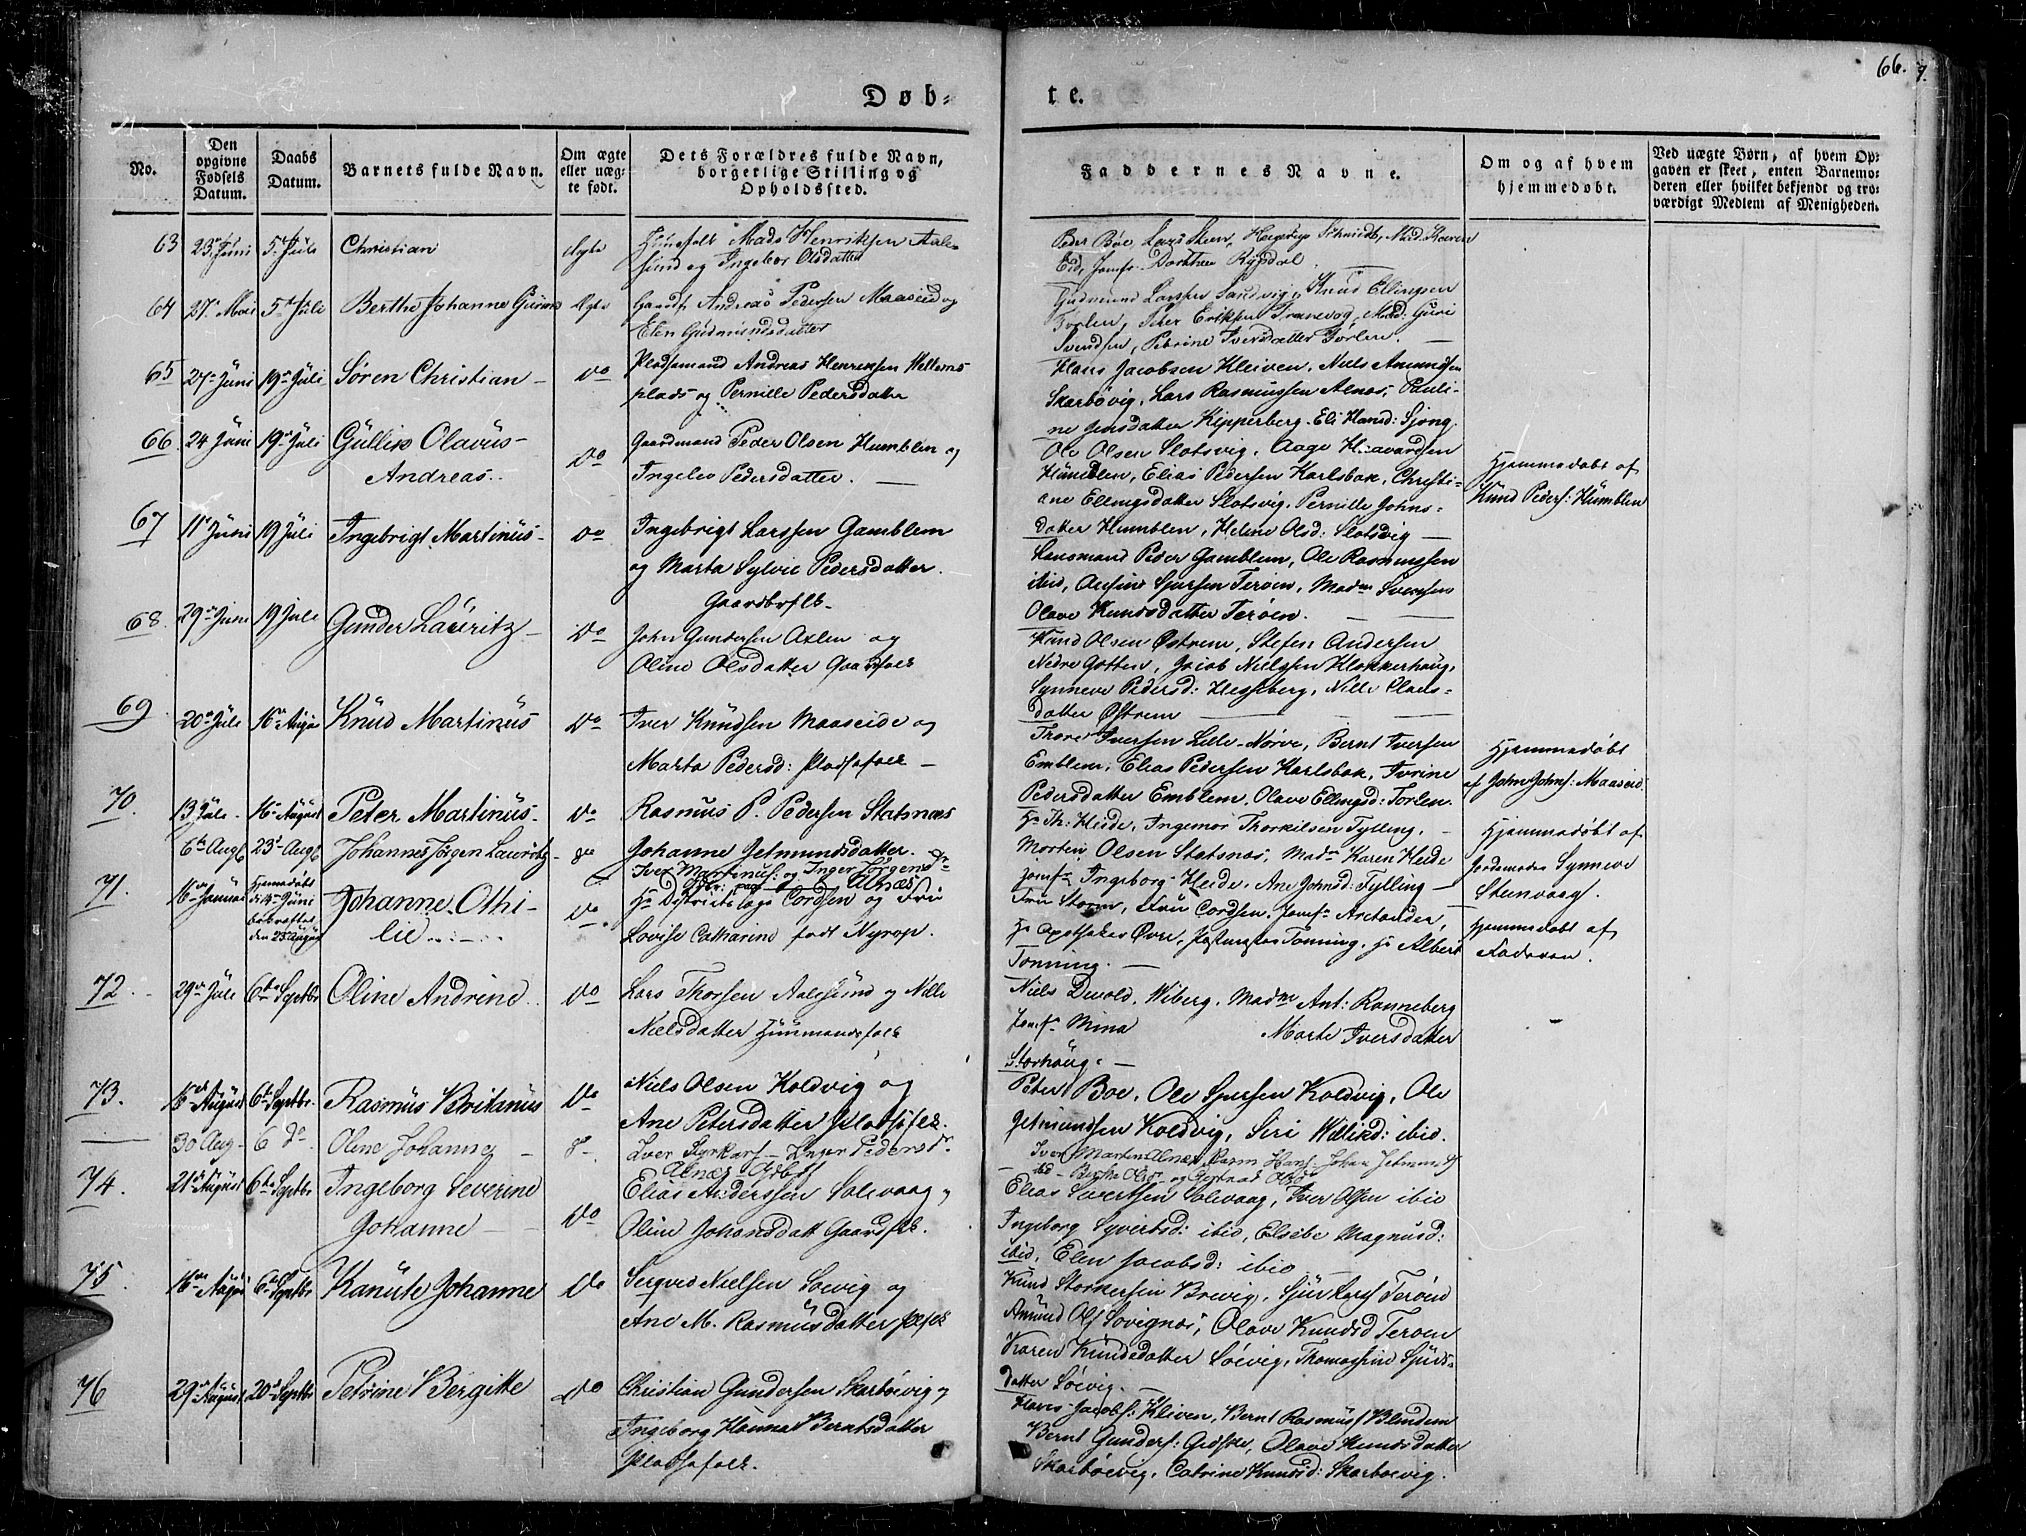 66.
Døb-
te.
No.
Den opgivne Fødsels Datum.
Daabs Datum.
Barnets fulde Navn.
Om ægte eller uæg-
te født.
Dets Forældres fulde Navn, borgerlige Stilling og Opholdssted.
Faddernes Navne.
Om og af hvem hjemmedøbt.
Ved uægte Børn, af hvem Op-
gaven er skeet, enten Barnemo-
deren eller hvilket bekjendt og tro-
værdigt Medlem af Menigheden.
63 23 Juni 5 Juli Christian Ægte Mads Henriksen Aale-
sund og Ingebor Olsdatter
Peder Böe, Lars Steen, Schmidt, Mad:
Eid, Jomfr. Dorthea Rysdal
64 27 Mai 5 Juli Berthe Johanne Ægte Gaardf. Andreas Pedersen Maaseid og
Elen Gudmundsdatter
Gudmund Larssen Sandvig, Knud Ellingsen
Torlen, Peter Eriksen Tranevog, Mad: Guri
Svendsen, Petrine Iversdatter Torlen.
65 27 Juni 19 Juli Søren Christian Do Pladsmand Andreas Henriksen Wellems-
plads og Pernille Pedersdatter
Hans Jacobsen Kleiven, Niels Amundsen
Skarbövig, Lars Rasmussen Alnæs, Pauli-
ne Jensdatter Kipperberg. Eli Hansd: Gjøng.
66. 24 Juni 19 Juli Gullik Olavus
Andreas. Do Gaardmand Peder Olsen Humblen og
Ingelev Pedersdatter.
Ole Olsen Slotsvig, Aage Haavardsen
Humblen, Elias Pedersen Karlsbak, Christi-
ane Ellingsdatter Slotsvig, Pernille Johns-
datter Humblen, Helene Olsd: Slotsvig
Hjemmedøbt af
Knud Peders: Humblen
67 11 Juni 19 Juli Ingebrigt Martinus Do Ingebrigt Larssen Gamblem
og Marta Sylvie Pedersdatter.
Gaardbrfolk.
Lensmand Peder Gamblem, Ole Rasmussen
ibid, Sjursen Terøen, Madm Svensen
Olave Knudsdatter Terøen.
68. 29 Juni 19 Juli Gunder Lauritz Do John Gundersen Axlen og
Oline Olsdatter Gaardfolk
Knud Olsen Østrem, Stefen Andersen
Nedre Gotten, Jacob Nielsen Klokkerhaug,
Synneve Pedersd: Hesseberg, Nille Claus-
datter Østrem
69 20 Juli 16 Augus Knud Martinus Do Iver Knudsen Maaseide og
Marta Pedersd: Pladsfolk
Thore Iversen Lille-Nørve, Bernt Iversen
Emblem, Elias Pedersen Karlsbak, Ivrine
Pedersdatter Emblem, Olave Ellingsd: Torlen.
Hjemmedøbt
af John Johns: Maaseid.
70. 13 Juli 16 August Peter Martinus Do Rasmus P. Pedersen Statsnæs
Johanne Jetmundsdatter.
Hr Th: Heide, Ingemor Thorkilsen Tylling,
Morten Olsen Statsnæs, Madm Karen Heide
Jomfr Ingeborg Heide, Ane Johnsd: Tylling
Hjemmedøbt af
Jordemoder Synneve
Stenvaag.
6 Aug 23 Aug Johannes Jörgen Lauritz Iver Martinus: og Inger Jörgensdr
Alnæs
71. 16 Januar Hjemmedøbt
d: 14 Juni
bekræftet
den 23 August Johanne Othi-
lie Do Hr Districtslæge Cordsen og Fru
Lovise Catharine født Nyrop.
Fru Storm, Fru Cordsen, Jomfr Arctander,
Hr Apotheker Øvre, Tonning, Hr Albert
Tonning.
Hjemmedøbt af
Faderen.
72. 29 Juli 6te Septbr Oline Andrine Do Lars Thorsen Aalesund og Nille
Nielsdatter Huusmandsfolk
Niels Devold, Wiberg, Madm Ant: Ronneberg
Jomfr Mina Marte Iversdatter
Storhaug.
73. 16 August 6te Septbr. Rasmus Britanus Do Niels Olsen Koldvig og
Ane Petersdatter Pladsfolk.
Peter Boe, Ole Sjursen Koldvig, Ole
Jetmundsen Koldvig, Siri Willisd: ibid.
30 Aug 6 do Oline Johanne Iver Styrkars Inger Pedersdr
Alnæs
Iver Martin Alnæs Rasm Hans: Johan Jetmunds
ibd - Berthe Olsdr og Gertrud Olsdr
74. 21 August 6te Septbr Ingeborg Severine
Johanne Do Elias Anderssen Solevaag og
Oline Johansdatt Gaardfolk.
Elias Sivertsen Solevaag, Iver Olsen ibid
Ingeborg Syvertsd: ibid, Elsebe Magnusd:
ibid, Elen Jacobsd: ibid
75. 16 August 6te Septbr Kanute Johanne Do Sergved Nielsen Soevig og
Ane M. Rasmusdatter
Knud Storkersen Brevig, Sjur Lars Terøen
Amund Ols Sovignæs, Olave Knudsd Terøen
Karen Knudsdatter Soevig, Thomasine Sjurs-
datter Soevig.
76 29 August 20 Septbr Petrine Bergitte Do Christian Gundersen Skarbøevig og
Ingeborg Hanna Berntsdatter
Pladsfolk.
Hans Jacobs: Kliven, Bernt Rasmuss Blindem
Bernt Gunders: Gidske, Olave Knudsdatter
Skarbøevig, Catrine Knudsd: Skarboevig.